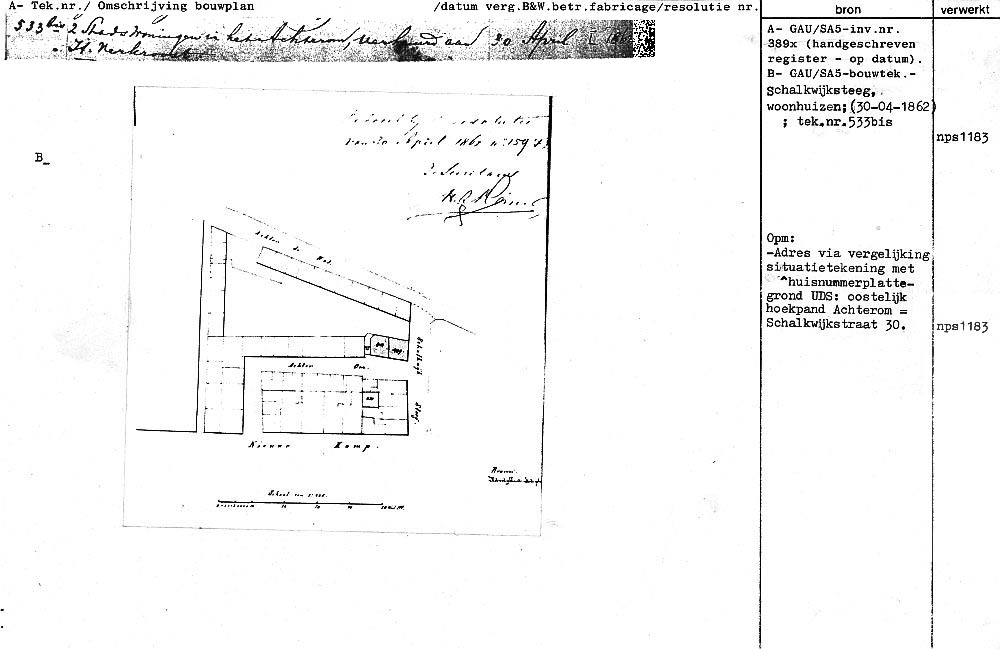 A- Tek.nr./ Omschrijving bouwplan /datum verg.B&W.betr.fabricage/resolutie nr.
bron
verwerkt
533bis 2 Stadswoningen in het Achterom, verkocht aan 30 April
A- GAU/SA5-inv.nr.
389x (handgeschreven
register - op datum).
B- GAU/SA5-bouwtek.-
Schalkwijksteeg,
woonhuizen; (30-04-1862)
; tek.nr.533bis
nps1183
B_
April 1862 n° 159
Achter de Wal.
Schalkwijk
Steeg.
Achter Om.
Nieuwe Kamp.
Schaal van
Opm:
-Adres via vergelijking
situatietekening met
^huisnummerplatte-
grond UDS: oostelijk
hoekpand Achterom =
Schalkwijkstraat 30.
nps1183